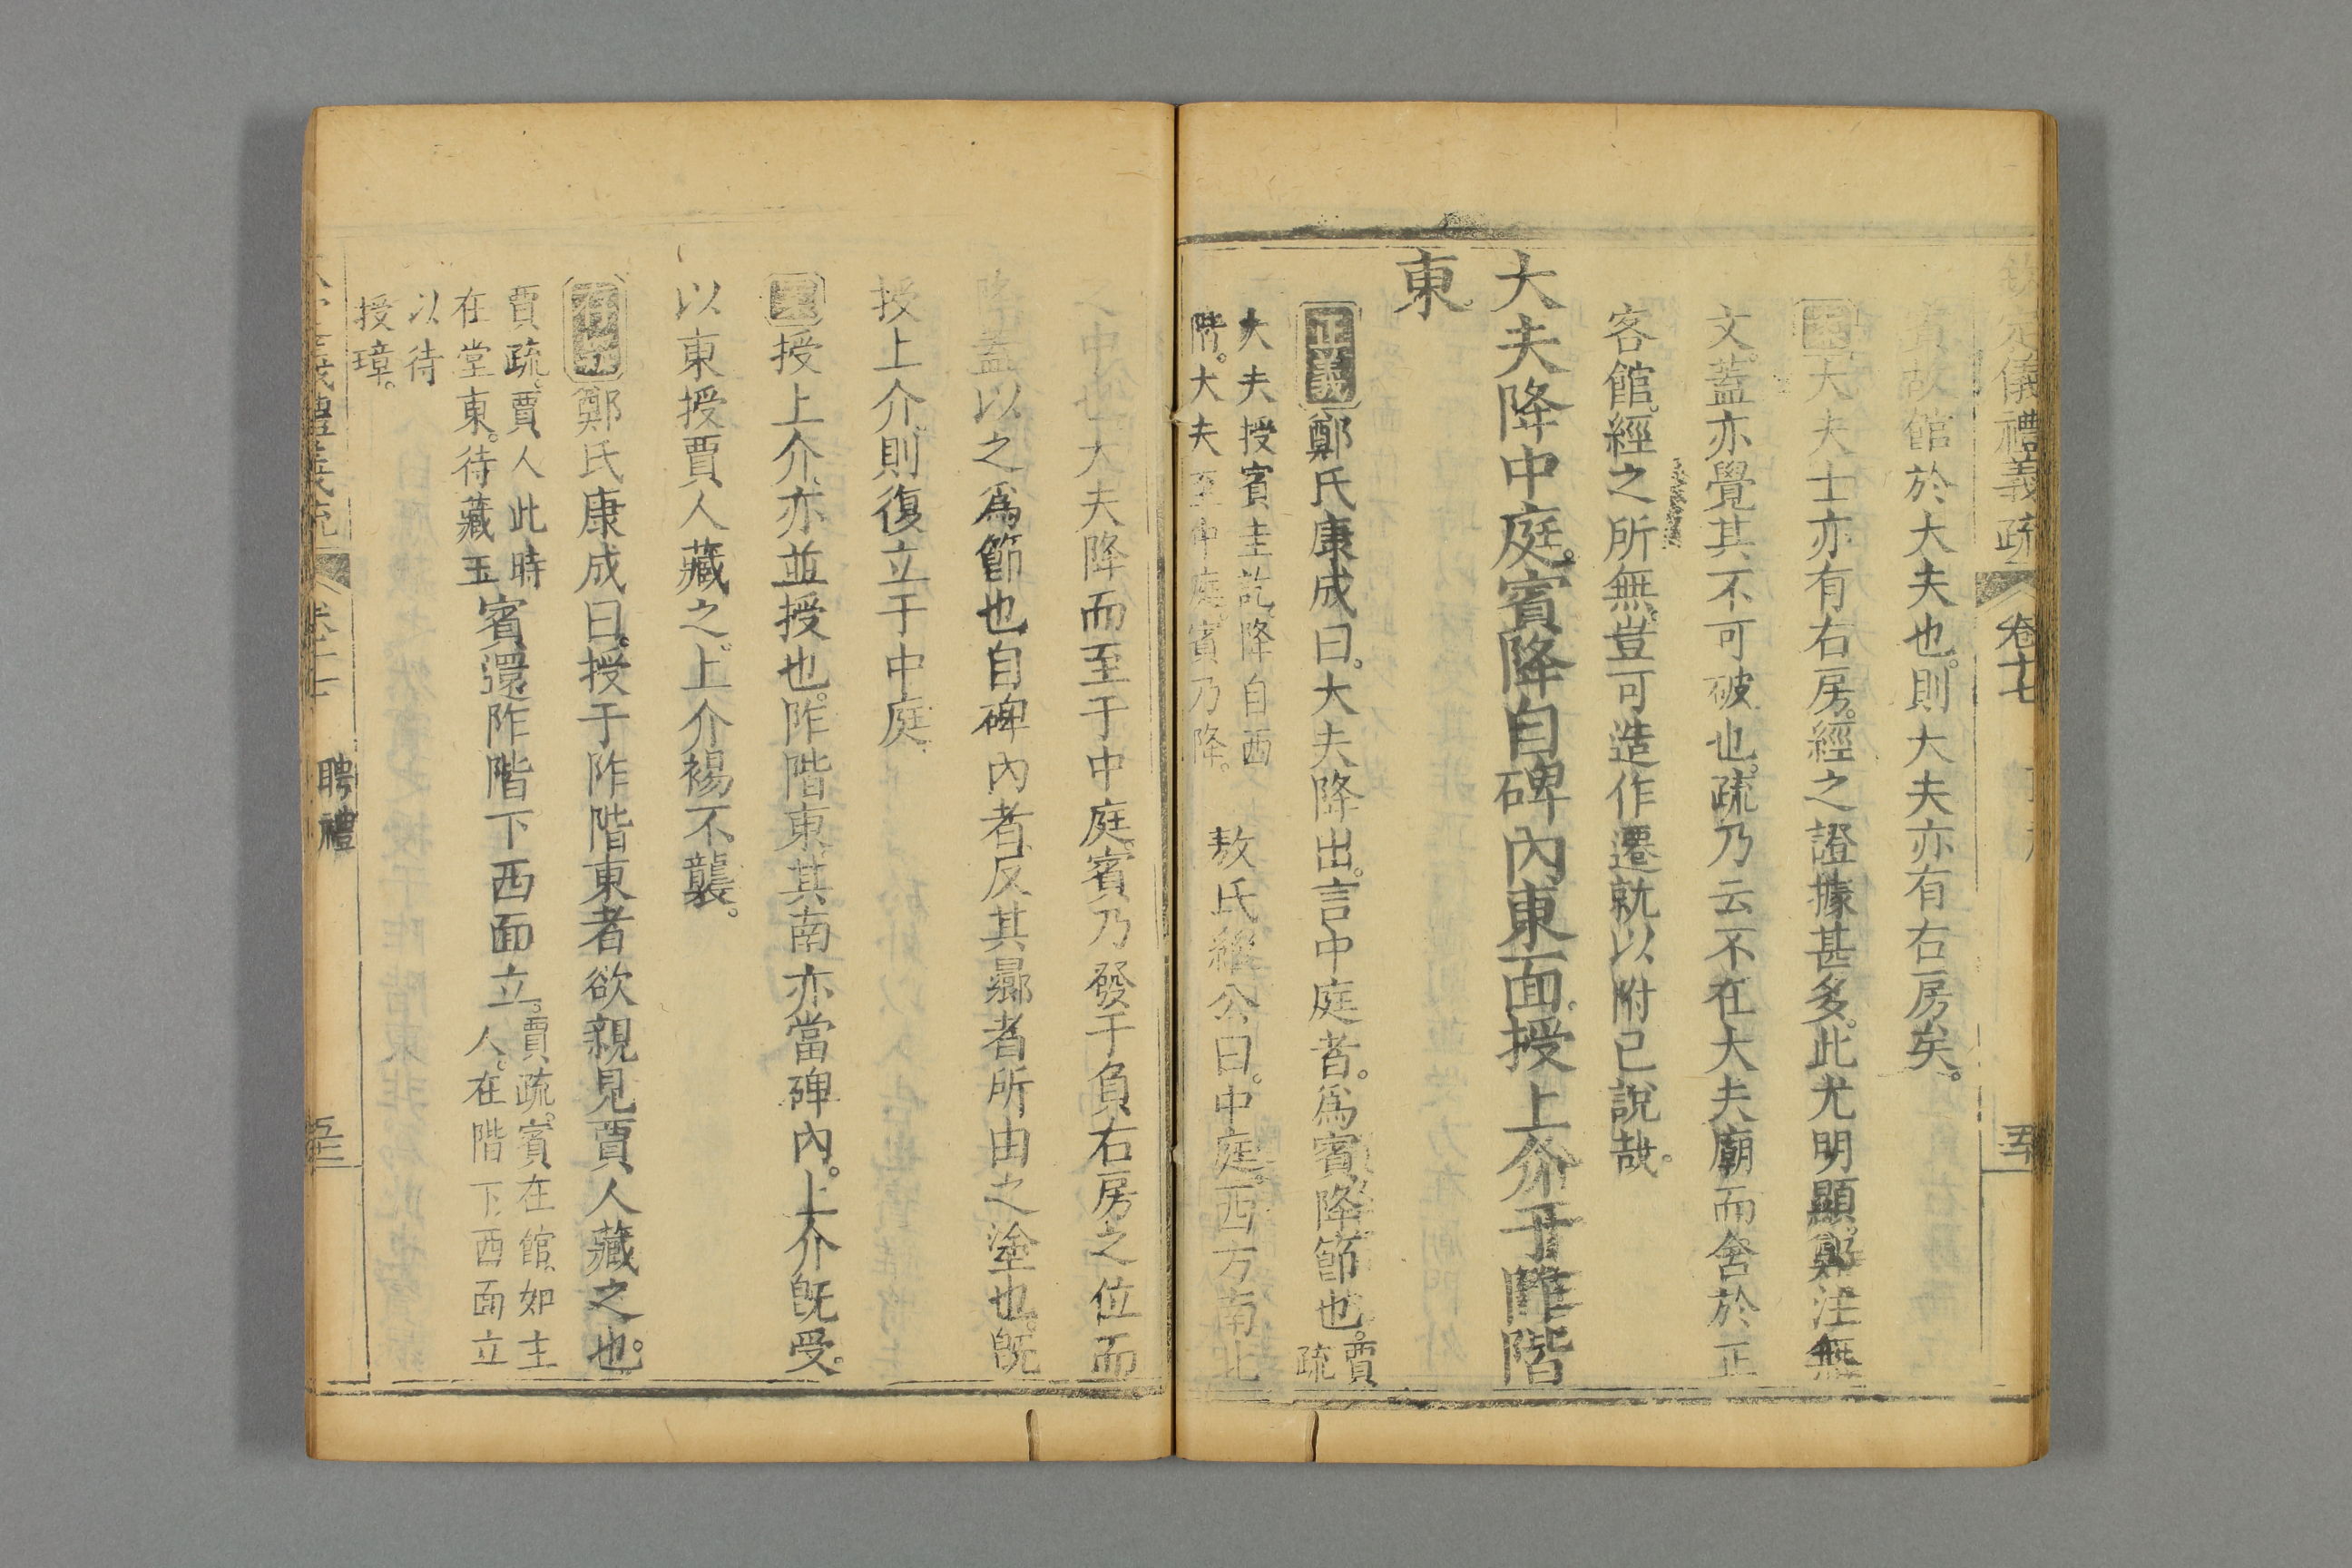 定儀禮義疏 卷十七
故館於大夫也。則大夫亦有右房矣。
大夫士亦有右房。經之證據甚多。此尤明顯。鄭注無
文。蓋亦覺其不可破也。疏乃云不在大夫廟而舍於正
客館。經之所無。豈可造作遷就以附己說哉。
大夫降中庭。賓降自碑內東面。授上介于阼階
東。
正義鄭氏康成曰。大夫降出。言中庭者。爲賓降節也。賈
疏
大夫授賓圭訖。降自西
階。大夫至中庭。賓乃降。
敖氏繼公曰。中庭。西方南北
之中也。大夫降而至于中庭。賓乃發于負右房之位而
降。蓋以之爲節也。自碑內者。反其曏者所由之塗也。旣
授上介。則復立于中庭。
授上介。亦並授也。阼階東。其南亦當碑內。上介旣受。
以東授賈人藏之。上介裼不襲。
鄭氏康成曰。授于阼階東者。欲親見賈人藏之也。
賈疏。賈人此時
在堂東。待藏玉
賓還阼階下西面立。
賈疏。賓在館如主
人。在階下西面立
以待
授璋。
聘禮